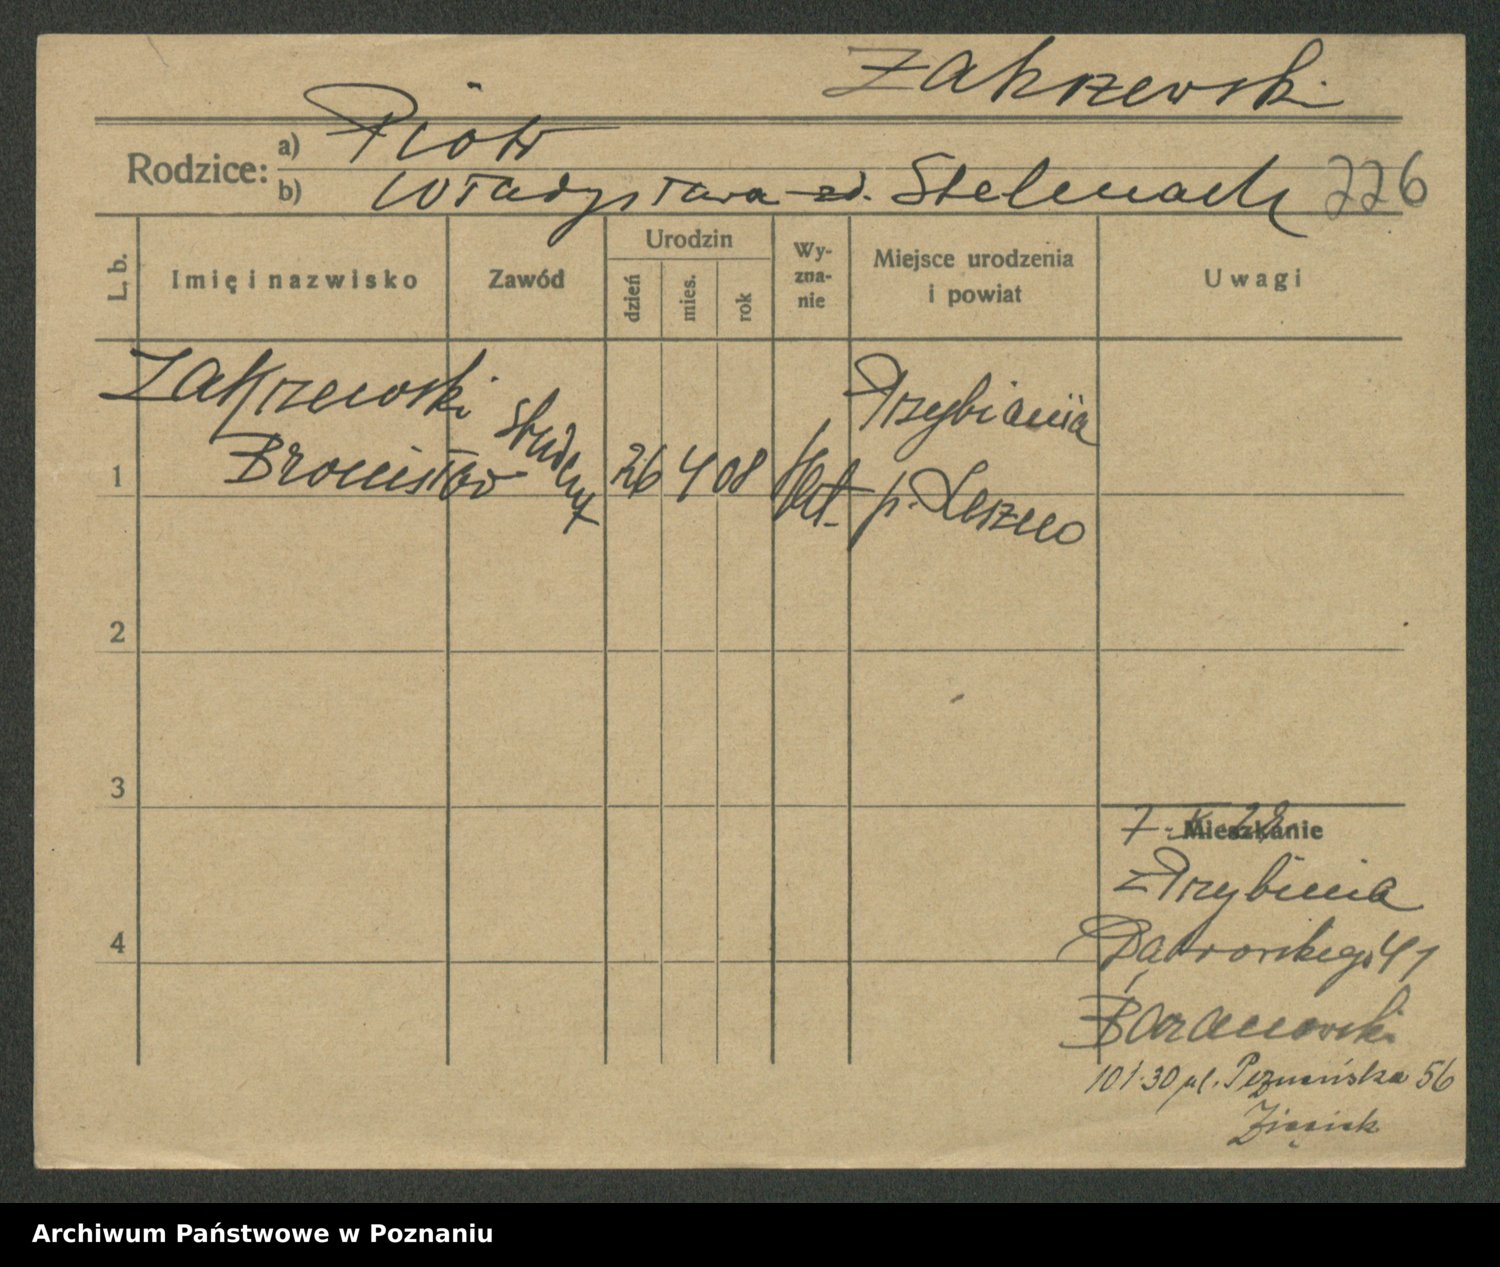 Zakrzewski
Rodzice: a) Piotr
b) Władysława zd. Stelmach 226
L. b. Imię i nazwisko Zawód Urodzin dzień mies. rok Wyznanie Miejsce urodzenia i powiat Uwagi
Zakrzewski Przybinia
1 Bronisław student 26 4 08 kat. p. Leszno
2
3
7. 28. Mieszkanie
z Przybinia
4 41
Baranowski
10 I 30 ul. Poznańska 56
Archiwum Państwowe w Poznaniu